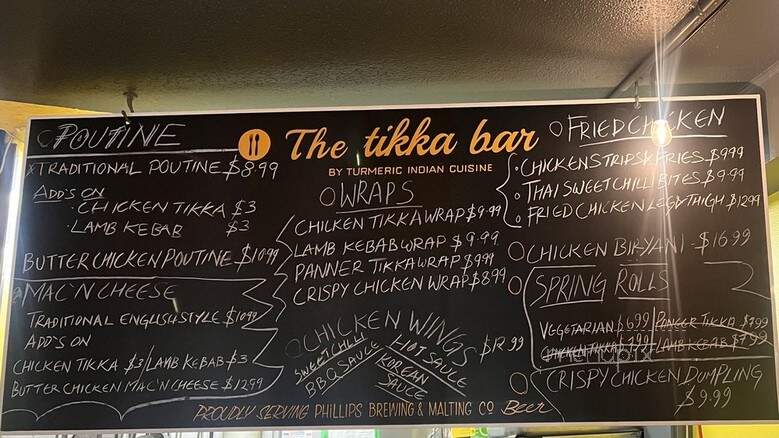 The tikka bar
BY TURMERIC INDIAN CUISINE
POUTINE
TRADITIONAL POUTINE $8.99
ADD'S ON
CHICKEN TIKKA $3
LAMB KEBAB $3
BUTTER CHICKEN POUTINE $10.99
MAC'N CHEESE
TRADITIONAL ENGLISH STYLE $10.99
ADD'S ON
CHICKEN TIKKA $3 / LAMB KEBAB $3
BUTTER CHICKEN MAC'N CHEESE $12.99
WRAPS
CHICKEN TIKKA WRAP $9.99
LAMB KEBAB WRAP $9.99
PANNER TIKKA WRAP $9.99
CRISPY CHICKEN WRAP $8.99
CHICKEN WINGS $12.99
SWEET CHILLI
BBQ SAUCE
HOT SAUCE
KOREAN
SAUCE
FRIED CHICKEN
CHICKEN STRIPS & FRIES $9.99
THAI SWEET CHILLI BITES $9.99
FRIED CHICKEN LEG & THIGH $12.99
CHICKEN BIRYANI - $16.99
SPRING ROLLS
VEGETARIAN $6.99 / PANEER TIKKA $7.99
CHICKEN TIKKA $7.99 / LAMB KEBAB $7.99
CRISPY CHICKEN DUMPLING
$9.99
PROUDLY SERVING PHILLIPS BREWING & MALTING CO Beer